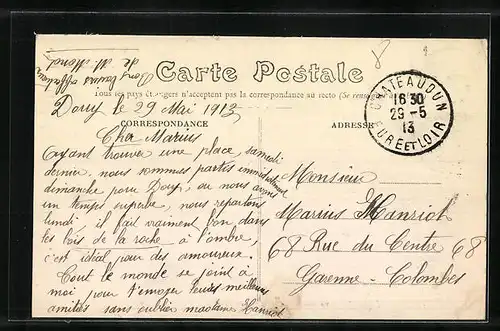 Bons baisers affectueux
de M
Carte Postale
Tous les pays étrangers n'acceptent pas la correspondance au recto (Se renseigner
Douy le 29 Mai 1913
CORRESPONDANCE
ADRESSE
CHATEAUDUN
16 30
29 - 5
13
EURE ET LOIR
Cher Marius
Ayant trouver une place, samedi
dernier, nous sommes partis immédiatement
dimanche pour Douy, ou nous avons
un temps superbe, nous repartons
lundi il fait vraiment bon dans
les bois de la roche à l'ombre,
c'est idéal pour des amoureux.
Tout le monde se joint à
moi pour t'envoyer leurs meilleurs
amitiés sans oublier madame Hanriot
Monsieur
Marius Hanriot
68 Rue du Centre 68
Garenne - Colombes